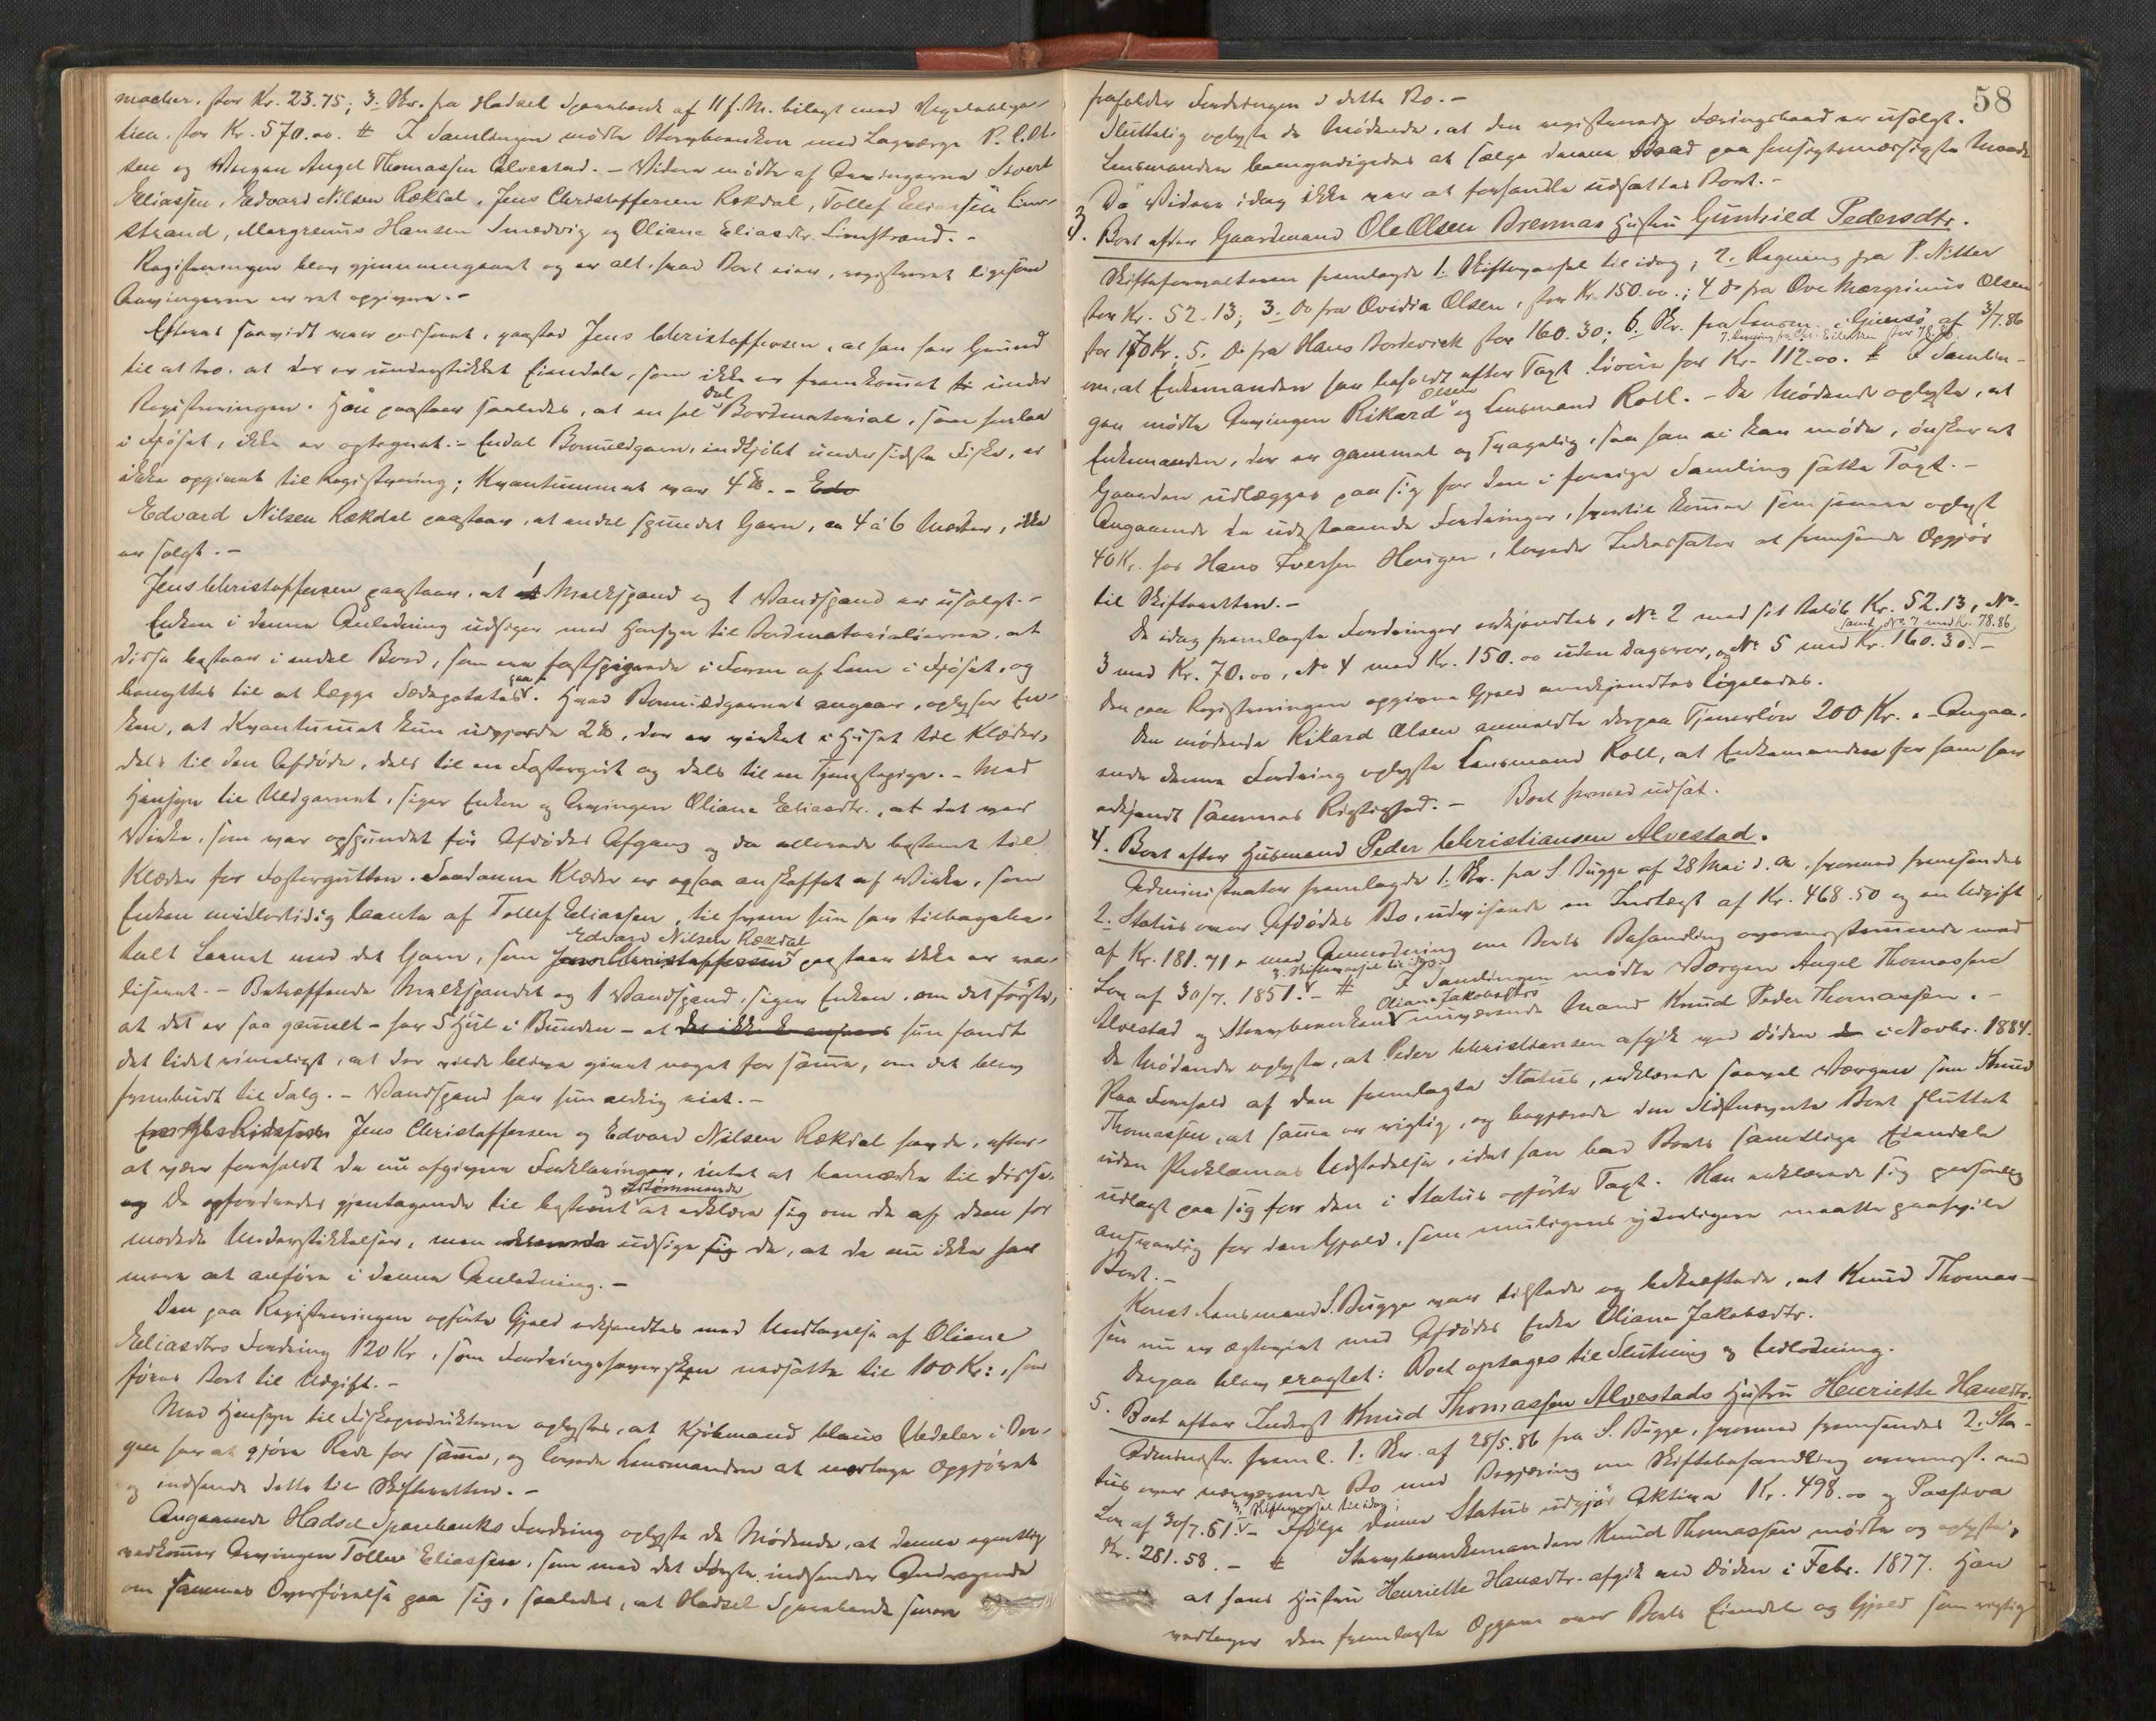 macher, stor Kr. 23.75; 3. Skr. fra Hadsel Sparebank af 11 f. M. bilagt med Vexelobliga-
tion, stor Kr. 570.00. # I Samlingen mødte Stervboenken med Laugværge P. C. Ol-
sen og Vergen Angel Thomassen Alvestad. - Videre mødte af Arvingerne Sivert
Eliassen, Edvard Nilsen Rækdal, Jens Christoffersen Rækdal, Tollef Eliassen Lim-
strand, Margrenus Hansen Smedvig og Oliana Eliasdtr. Limstrand. -
Registreringen blev gjennemgaaet og er alt, hvad Boet eier, registreret ligesom
Arvingerne er ret opgivne. -
Efterat saavidt var passeret, paastod Jens Christoffersen, at han har Grund
til at tro, at der er understukket Eiendele, som ikke er fremkommet under
Registreringen. Han paastaar saaledes, at en hel Del Bordmaterial, som henlaa
i Fjøset, ikke er optegnet. - Endel Bomuldgarn, indkjøbt under sidste Fiske, er
ikke opgivet til Registrering; Kvantummet var 4 ℔. - Edv
Edvard Nilsen Rækdal paastaar, at endel spundet Garn, ca 4 à 6 Mærker, ikke
er solgt. -
Jens Christoffersen paastaar, at 1 Melkspand og 1 Vandspand er usolgt. -
Enken i denne Anledning udsiger med Hensyn til Bordmaterialierne, at
disse bestaar i endel Bord, som er fastspigrede i Form af Lem i Fjøset, og
benyttes til at lægge Sædepoteter paa. Hvad Bomuldgarnet angaar, oplyser En-
ken, at Kvantummet kun udgjorde 2 ℔, der er virket i Huset til Klæder,
dels til den Afdøde, dels til en Fostergut og dels til en Tjenestepige. - Med
Hensyn til Uldgarnet, siger Enken og Arvingen Oliana Eliasdtr., at det var
Virke, som var opspundet før Afdødes Afgang og da allerede bestemt til
Klæder for Fostergutten. Saadanne Klæder er ogsaa anskaffet af Virke, som
Enken midlertidig laante af Tollef Eliassen, til hvem hun har tilbagebe-
talt Laanet med det Garn, som Jens Christoffersen Edvard Nilsen Rækdal paastaar ikke er rea-
liseret. - Betræffende Melkspandet og 1 Vandspand, siger Enken, om det første,
at det er saa gammelt - har 5 Hul i Bunden - at hun fandt
det lidet rimeligt, at der vilde blive givet noget for samme, om det blev
frembudt til Salg. - Vandspand har hun aldrig eiet. -
Jens Christoffersen og Edvard Nilsen Rækdal havde, efter-
at være foreholdt de nu afgivne Forklaringer, intet at bemærke til disse.
De opfordredes gjentagende til bestemt og at erklære sig om de af dem for
modede Understikkelser, men udsige de, at de nu ikke har
mere at anføre i denne Anledning. -
Den paa Registreringen opførte Gjæld erkjendtes med Undtagelse af Oliana
Eliasdtrs Fordring 120 Kr, som Fordringshaversken nedsatte til 100 Kr:, som
føres Boet til Udgift. -
Med Hensyn til Fiskeprodukterne oplystes, at Kjøbmand Claus Uedeler i Ber-
gen har at gjøre Rede for samme, og lovede Lensmanden at modtage Opgjøret
og indsende dette til Skifteretten. -
Angaaende Hadsel Sparebanks Fordring oplyste de Mødende, at denne egentlig
vedkommer Arvingen Tollev Eliassen, som med det Første indsender Andragende
om sammes Overførelse paa sig, saaledes, at Hadsel Sparebank senere
58
frafalder Fordringen i dette Bo. -
Sluttelig oplyste de Mødende, at den registrerede Færingsbaad er usolgt.
Lensmanden bemyndigedes at sælge denne Baad paa hensigtsmæssigste Maade.
Da Videre idag ikke var at forhandle udsattes Boet. -
3. Boet efter Gaardmand Ole Olsen Brennas Hustru Guntried Pedersdtr.
Skifteforvalteren fremlagde 1. Skiftevarsel til idag; 2. Regning fra P. Nitter
stor Kr. 52.13; 3. Do fra Ovidia Olsen, stor Kr. 150.00.; 4 Do fra Ove Margrinus Olsen
for 170 Kr; 5. Do fra Hans Borkevich stor 160.30; 6. Skr. fra Lensm. i Gimsø af 3/7.86
7. Regning fra Chr. Ellertsen stor 78.86
om, at Enkemanden har beholdt efter Taxt Løsøre for Kr. 112.00. # I Samlin-
gen mødte Arvingen Rikard Olsen og Lensmand Roll. - De Mødende oplyste, at
Enkemanden, der er gammel og svagelig, saa han ei kan møde, ønsker at
Gaarden udlægges paa sig for den i forrige Samling satte Taxt. -
Angaaende de udestaaende Fordringer, hvortil kommer som senere oplyst
40 Kr. hos Hans Iversen Haugen, lovede Inkassator at fremsende Opgjør
til Skifteretten. -
De idag fremlagte Fordringer erkjendtes, No. 2 med sit Beløb Kr. 52.13, No.
3 med Kr. 70.00, No 4 med Kr. 150.00 uden Dagsrer, og No 5 med Kr. 160.30. samt No. 7 med Kr. 78.86
Den paa Registreringen opgivne Gjæld anerkjendtes ligeledes.
Den mødende Rikard Olsen anmeldte derpaa Tjenerløn 200 Kr. - Angaa-
ende denne Fordring oplyste Lensmand Roll, at Enkemanden for ham har
erkjendt sammes Rigtighed. - Boet hermed udsat.
4. Boet efter Husmand Peder Christiansen Alvestad.
Administrator fremlagde 1. Skr. fra S. Bugge af 28 Mai d. A., hvormed fremsendes
2. Status over Afdødes Bo, udvisende en Indtægt af Kr. 468.50 og en Udgift
af Kr. 181.71, med Anmodning om Boets Behandling overensstemmende med
Lov af 30/7. 1851. - 3. Skiftevarsel til idag. # I Samlingen mødte Værgen Angel Thomassen
Alvestad og Stervboenkens Oliana Jakobsdtrs nuværende Mand Knud Peder Thomassen. -
De Mødende oplyste, at Peder Christiansen afgik ved Døden i Novbr. 1884.
Paa Forehold af den fremlagte Status, erklærede saavel Værgen som Knud
Thomassen, at samme er rigtig, og begjærede den Sidstnævnte Boet sluttet
uden Proklamas Udstedelse, idet han bad Boets samtlige Eiendele
udlagt paa sig for den i Status opførte Taxt. Han erklærede sig personlig
ansvarlig for den Gjæld, som muligens yderligere maatte paahvile
Boet. -
Konst. Lensmand S. Bugge var tilstede og bekræftede, at Knud Thomas-
sen nu er ægteviet med Afdødes Enke Oliana Jakobsdtr.
Derpaa blev eragtet: Boet optages til Slutning og Udlodning.
5. Boet efter Inderst Knud Thomassen Alvestads Hustru Henriette Hansdtr.
Administr. freml. 1. Skr. af 28/5.86 fra S. Bugge, hvormed fremsendes 2. Sta-
tus over nærværende Bo med Begjæring om Skiftebehandling overensst. med
Lov af 30/7.51. - 3. Skiftevarsel til idag; Ifølge denne Status udgjør Aktiva Kr. 498.00 og Passiva
Kr. 281.58. - # Stervboenkemanden Knud Thomassen mødte og oplyste,
at hans Hustru Henriette Hansdtr. afgik ved Døden i Febr. 1877. Han
vedtager den fremlagte Opgave over Boets Eiendele og Gjæld som rigtig